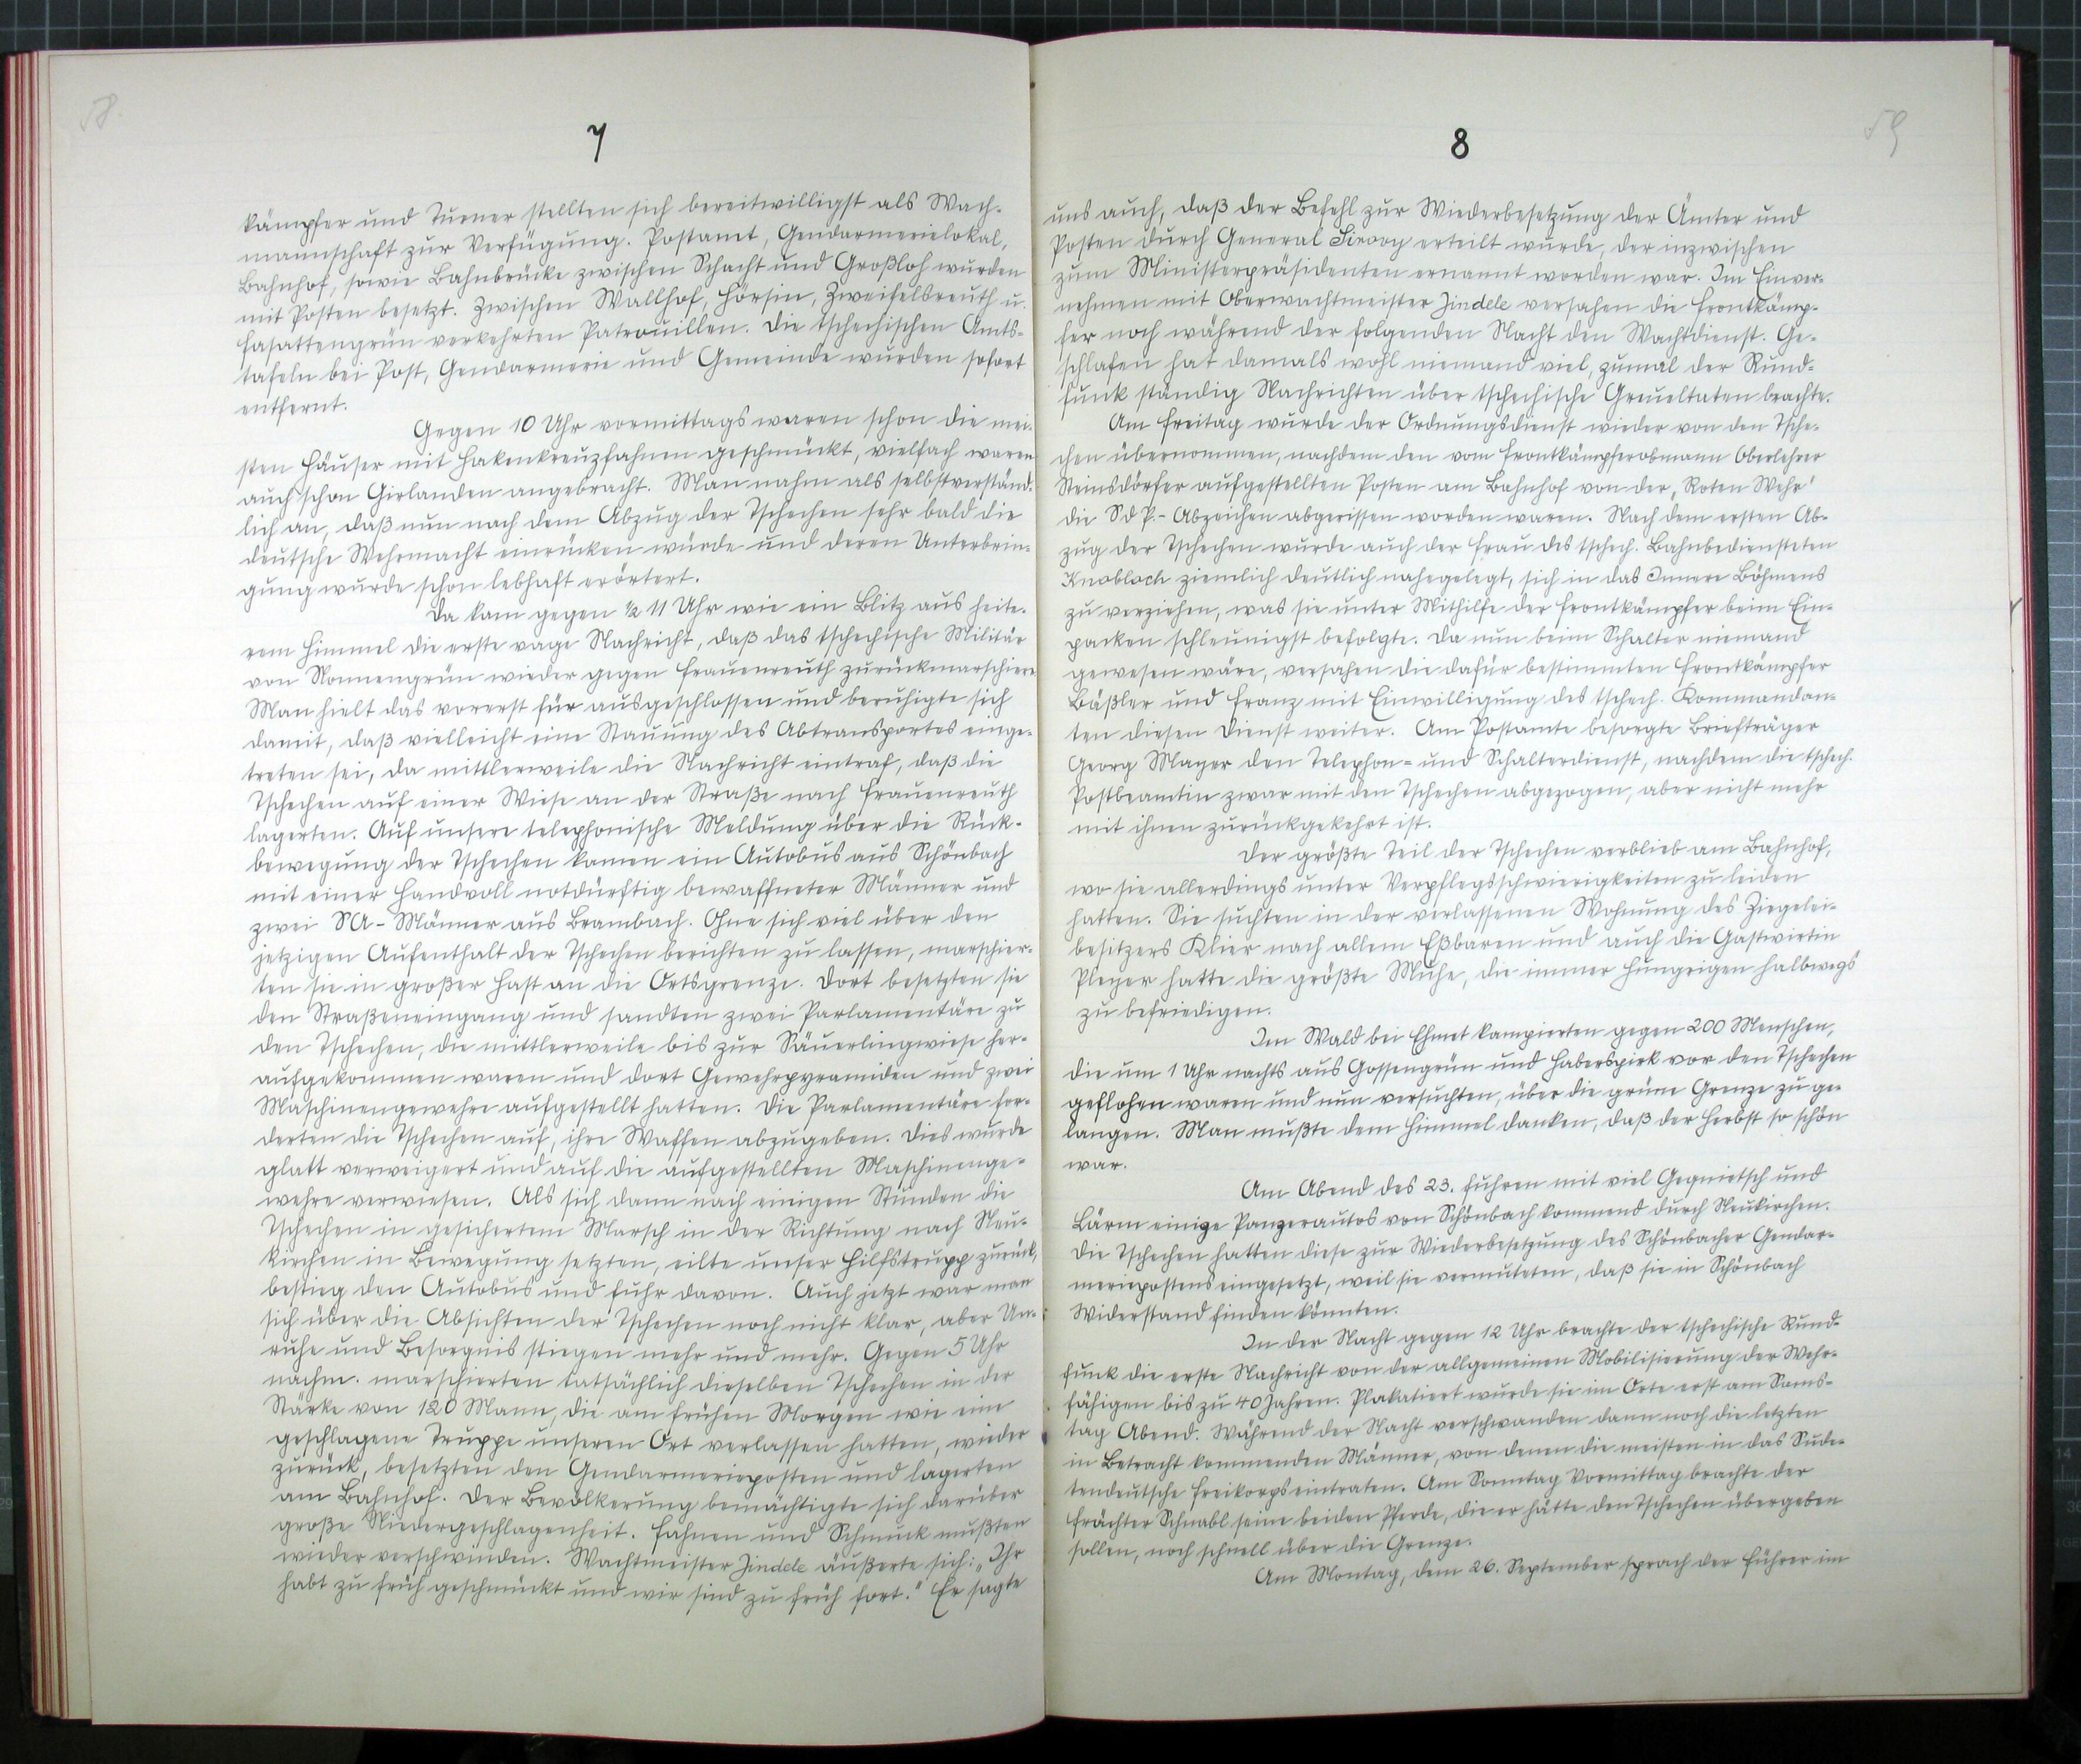 58.
7
kämpfer und Turner stellten sich bereitwilligst als Wach-
mannschaft zur Verfügung. Postamt, Gendarmerielokal,
Bahnhof, sowie Bahnbrücke zwischen Schacht und Großloh wurden
mit Posten besetzt. Zwischen Wallhof, Hörsin, Zweifelsreuth u.
Fasattengrün verkehrten Patrouillen. Die tschechischen Amts-
tafeln bei Post, Gendarmerie und Gemeinde wurden sofort
entfernt.
Gegen 10 Uhr vormittags waren schon die mei-
sten Häuser mit Hakenkreuzfahnen geschmückt, vielfach waren
auch schon Girlanden angebracht. Man nahm als selbstverständ-
lich an, daß nun nach dem Abzug der Tschechen sehr bald die
deutsche Wehrmacht einrücken würde und deren Unterbrin-
gung wurde schon lebhaft erörtert.
Da kam gegen ½ 11 Uhr wie ein Blitz aus heite-
rem Himmel die erste vage Nachricht, daß das tschechische Militär
von Nonnengrün wieder gegen Frauenreuth zurückmarschiere
Man hielt das vorerst für ausgeschlossen und beruhigte sich
damit, daß vielleicht eine Stauung des Abtransportes einge-
treten sei, da mittlerweile die Nachricht eintraf, daß die
Tschechen auf einer Wiese an der Straße nach Frauenreuth
lagerten. Auf unsere telephonische Meldung über die Rück-
bewegung der Tschechen kamen ein Autobus aus Schönbach
mit einer Handvoll notdürftig bewaffneter Männer und
zwei SA-Männer aus Brambach. Ohne sich viel über den
jetzigen Aufenthalt der Tschechen berichten zu lassen, marschier-
ten sie in großer Hast an die Ortsgrenze. Dort besetzten sie
den Straßeneingang und sandten zwei Parlamentäre zu
den Tschechen, die mittlerweile bis zur Säuerlingwiese her-
aufgekommen waren und dort Gewehrpyramiden und zwei
Maschinengewehre aufgestellt hatten. Die Parlamentäre for-
derten die Tschechen auf, ihre Waffen abzugeben. Dies wurde
glatt verweigert und auf die aufgestellten Maschinenge-
wehre verwiesen. Als sich dann nach einigen Stunden die
Tschechen in gesichertem Marsch in der Richtung nach Neu-
kirchen in Bewegung setzten, eilte unser Hilfstrupp zurück,
bestieg den Autobus und fuhr davon. Auch jetzt war man
sich über die Absichten der Tschechen noch nicht klar, aber Un-
ruhe und Besorgnis stiegen mehr und mehr. Gegen 5 Uhr
nachm. marschierten tatsächlich dieselben Tschechen in der
Stärke von 120 Mann, die am frühen Morgen wie eine
geschlagene Truppe unseren Ort verlassen hatten, wieder
zurück, besetzten den Gendarmerieposten und lagerten
am Bahnhof. Der Bevölkerung bemächtigte sich darüber
große Niedergeschlagenheit. Fahnen und Schmuck mußten
wieder verschwinden. Wachtmeister Jindele äußerte sich: „Ihr
habt zu früh geschmückt und wir sind zu früh fort." Er sagte
59
8
uns auch, daß der Befehl zur Wiederbesetzung der Ämter und
Posten durch General Sirovy erteilt wurde, der inzwischen
zum Ministerpräsidenten ernannt worden war. Im Einver-
nehmen mit Oberwachtmeister Jindele versahen die Frontkämp-
fer noch während der folgenden Nacht den Wachtdienst. Ge-
schlafen hat damals wohl niemand viel, zumal der Rund-
funk ständig Nachrichten über tschechische Greueltaten brachte.
Am Freitag wurde der Ordnungsdienst wieder von den Tsche-
chen übernommen, nachdem den vom Frontkämpferobmann Oberlehrer
Steinsdörfer aufgestellten Posten am Bahnhof von der „Roten Wehr'
die SdP.-Abzeichen abgerissen worden waren. Nach dem ersten Ab-
zug der Tschechen wurde auch der Frau des tschech. Bahnbediensteten
Knobloch ziemlich deutlich nahegelegt, sich in das Innere Böhmens
zu verziehen, was sie unter Mithilfe der Frontkämpfer beim Ein-
packen schleunigst befolgte. Da nun beim Schalter niemand
gewesen wäre, versahen die dafür bestimmten Frontkämpfer
Bäßler und Franz mit Einwilligung des tschech. Kommandan-
ten diesen Dienst weiter. Am Postamte besorgte Briefträger
Georg Mayer den Telephon- und Schalterdienst, nachdem die tschech.
Postbeamtin zwar mit den Tschechen abgezogen, aber nicht mehr
mit ihnen zurückgekehrt ist.
Der größte Teil der Tschechen verblieb am Bahnhof,
wo sie allerdings unter Verpflegsschwierigkeiten zu leiden
hatten. Sie suchten in der verlassenen Wohnung des Ziegelei-
besitzers Klier nach allem Eßbaren und auch die Gastwirtin
Pleyer hatte die größte Mühe, die immer Hungrigen halbwegs
zu befriedigen.
Im Wald bei Ehmet kampierten gegen 200 Menschen,
die um 1 Uhr nachts aus Gossengrün und Haberspirk vor den Tschechen
geflohen waren und nun versuchten, über die grüne Grenze zu ge-
langen. Man mußte dem Himmel danken, daß der Herbst so schön
war.
Am Abend des 23. fuhren mit viel Gequietsch und
Lärm einige Panzerautos von Schönbach kommend durch Neukirchen.
Die Tschechen hatten diese zur Wiederbesetzung des Schönbacher Gendar-
meriepostens eingesetzt, weil sie vermuteten, daß sie in Schönbach
Widerstand finden könnten.
In der Nacht gegen 12 Uhr brachte der tschechische Rund-
funk die erste Nachricht von der allgemeinen Mobilisierung der Wehr-
fähigen bis zu 40 Jahren. Plakatiert wurde sie im Orte erst am Sams-
tag Abend. Während der Nacht verschwanden dann noch die letzten
in Betracht kommenden Männer, von denen die meisten in das Sude-
tendeutsche Freikorps eintraten. Am Sonntag Vormittag brachte der
Frächter Schnabl seine beiden Pferde, die er hätte den Tschechen übergeben
sollen, noch schnell über die Grenze.
Am Montag, dem 26. September sprach der Führer im